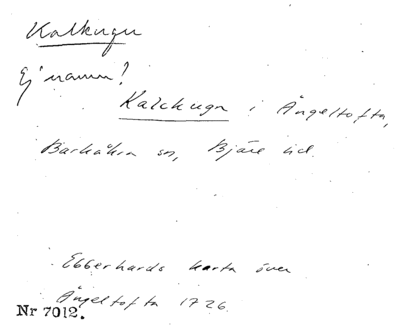 Kalkugn
Ej namn!
Kalckugn i Ängeltofta,
Barkåkra sn, Bjäre hd.
Ebberhards karta över
Ängeltofta 1726.
Nr 7012.